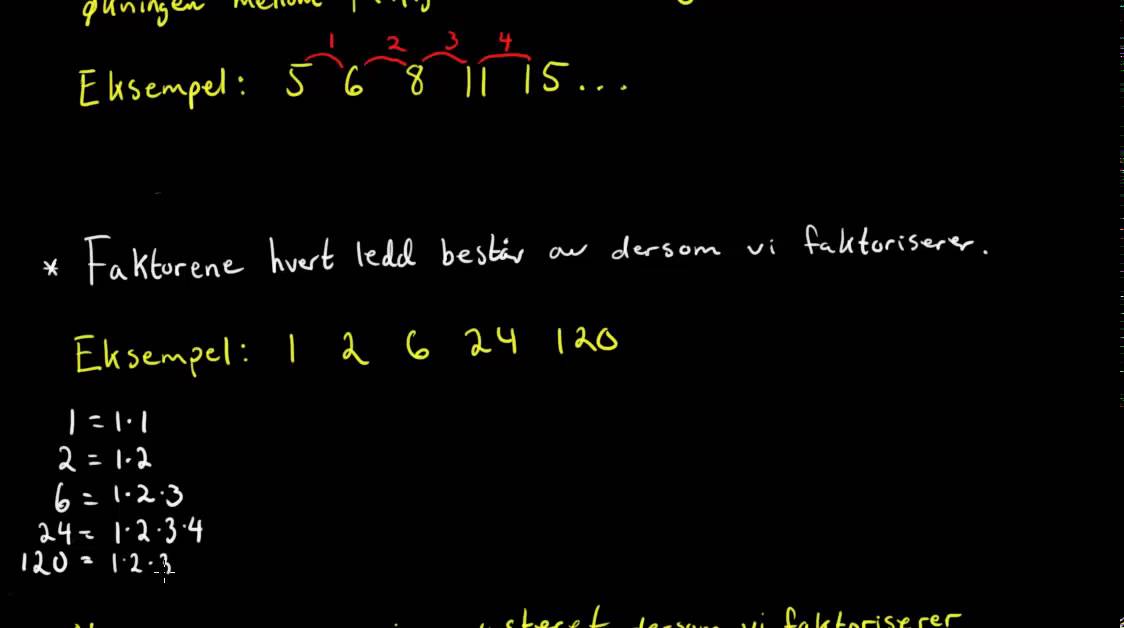 økningen mellom
1 2 3 4
Eksempel: 5 6 8 11 15...
* Faktorene hvert ledd består av dersom vi faktoriserer.
Eksempel: 1 2 6 24 120
1 = 1·1
2 = 1·2
6 = 1·2·3
24 = 1·2·3·4
120 = 1·2·3
dersom vi faktoriserer